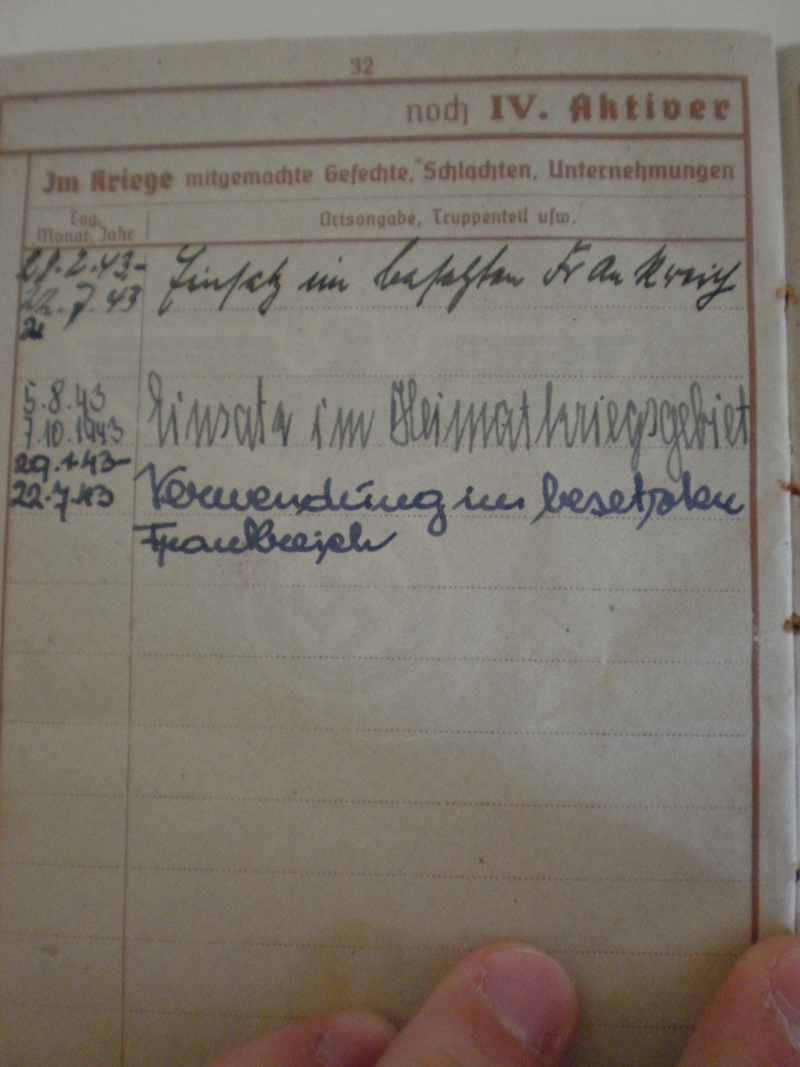 32
noch IV. Aktiver
Im Kriege mitgemachte Gefechte, Schlachten, Unternehmungen
Tag, Monat, Jahr
Ortsangabe, Truppenteil usw.
.2.43- Einsatz im besetzten Frankreich
22.7.43
5.8.43
7.10.1943 Einsatz im Heimatkriegsgebiet
29.1.43-
22.7.43 Verwendung im besetzten
Frankreich